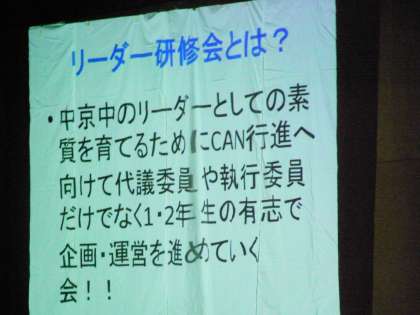 リーダー研修会とは？
・中京中のリーダーとしての素
質を育てるためにCAN行進へ
向けて代議委員や執行委員
だけでなく1・2年生の有志で
企画・運営を進めていく
会！！